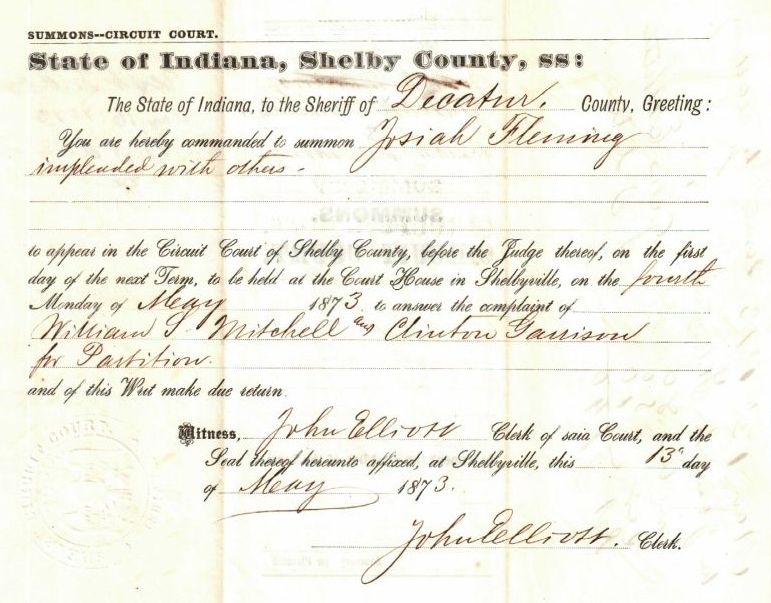 SUMMONS--CIRCUIT COURT.
State of Indiana, Shelby County, ss:
The State of Indiana, to the Sheriff of Decatur. County, Greeting:
You are hereby commanded to summon Josiah Fleming
impleaded with others -
to appear in the Circuit Court of Shelby County, before the Judge thereof, on the first
day of the next Term, to be held at the Court House in Shelbyville, on the fourth
Monday of May 1873 to answer the complaint of
William S. Mitchell and Clinton Garrison
for Partition.
and of this Writ make due return.
Witness, John Elliott Clerk of said Court, and the
Seal thereof hereunto affixed, at Shelbyville, this 13" day
of May 1873.
John Elliott. Clerk.